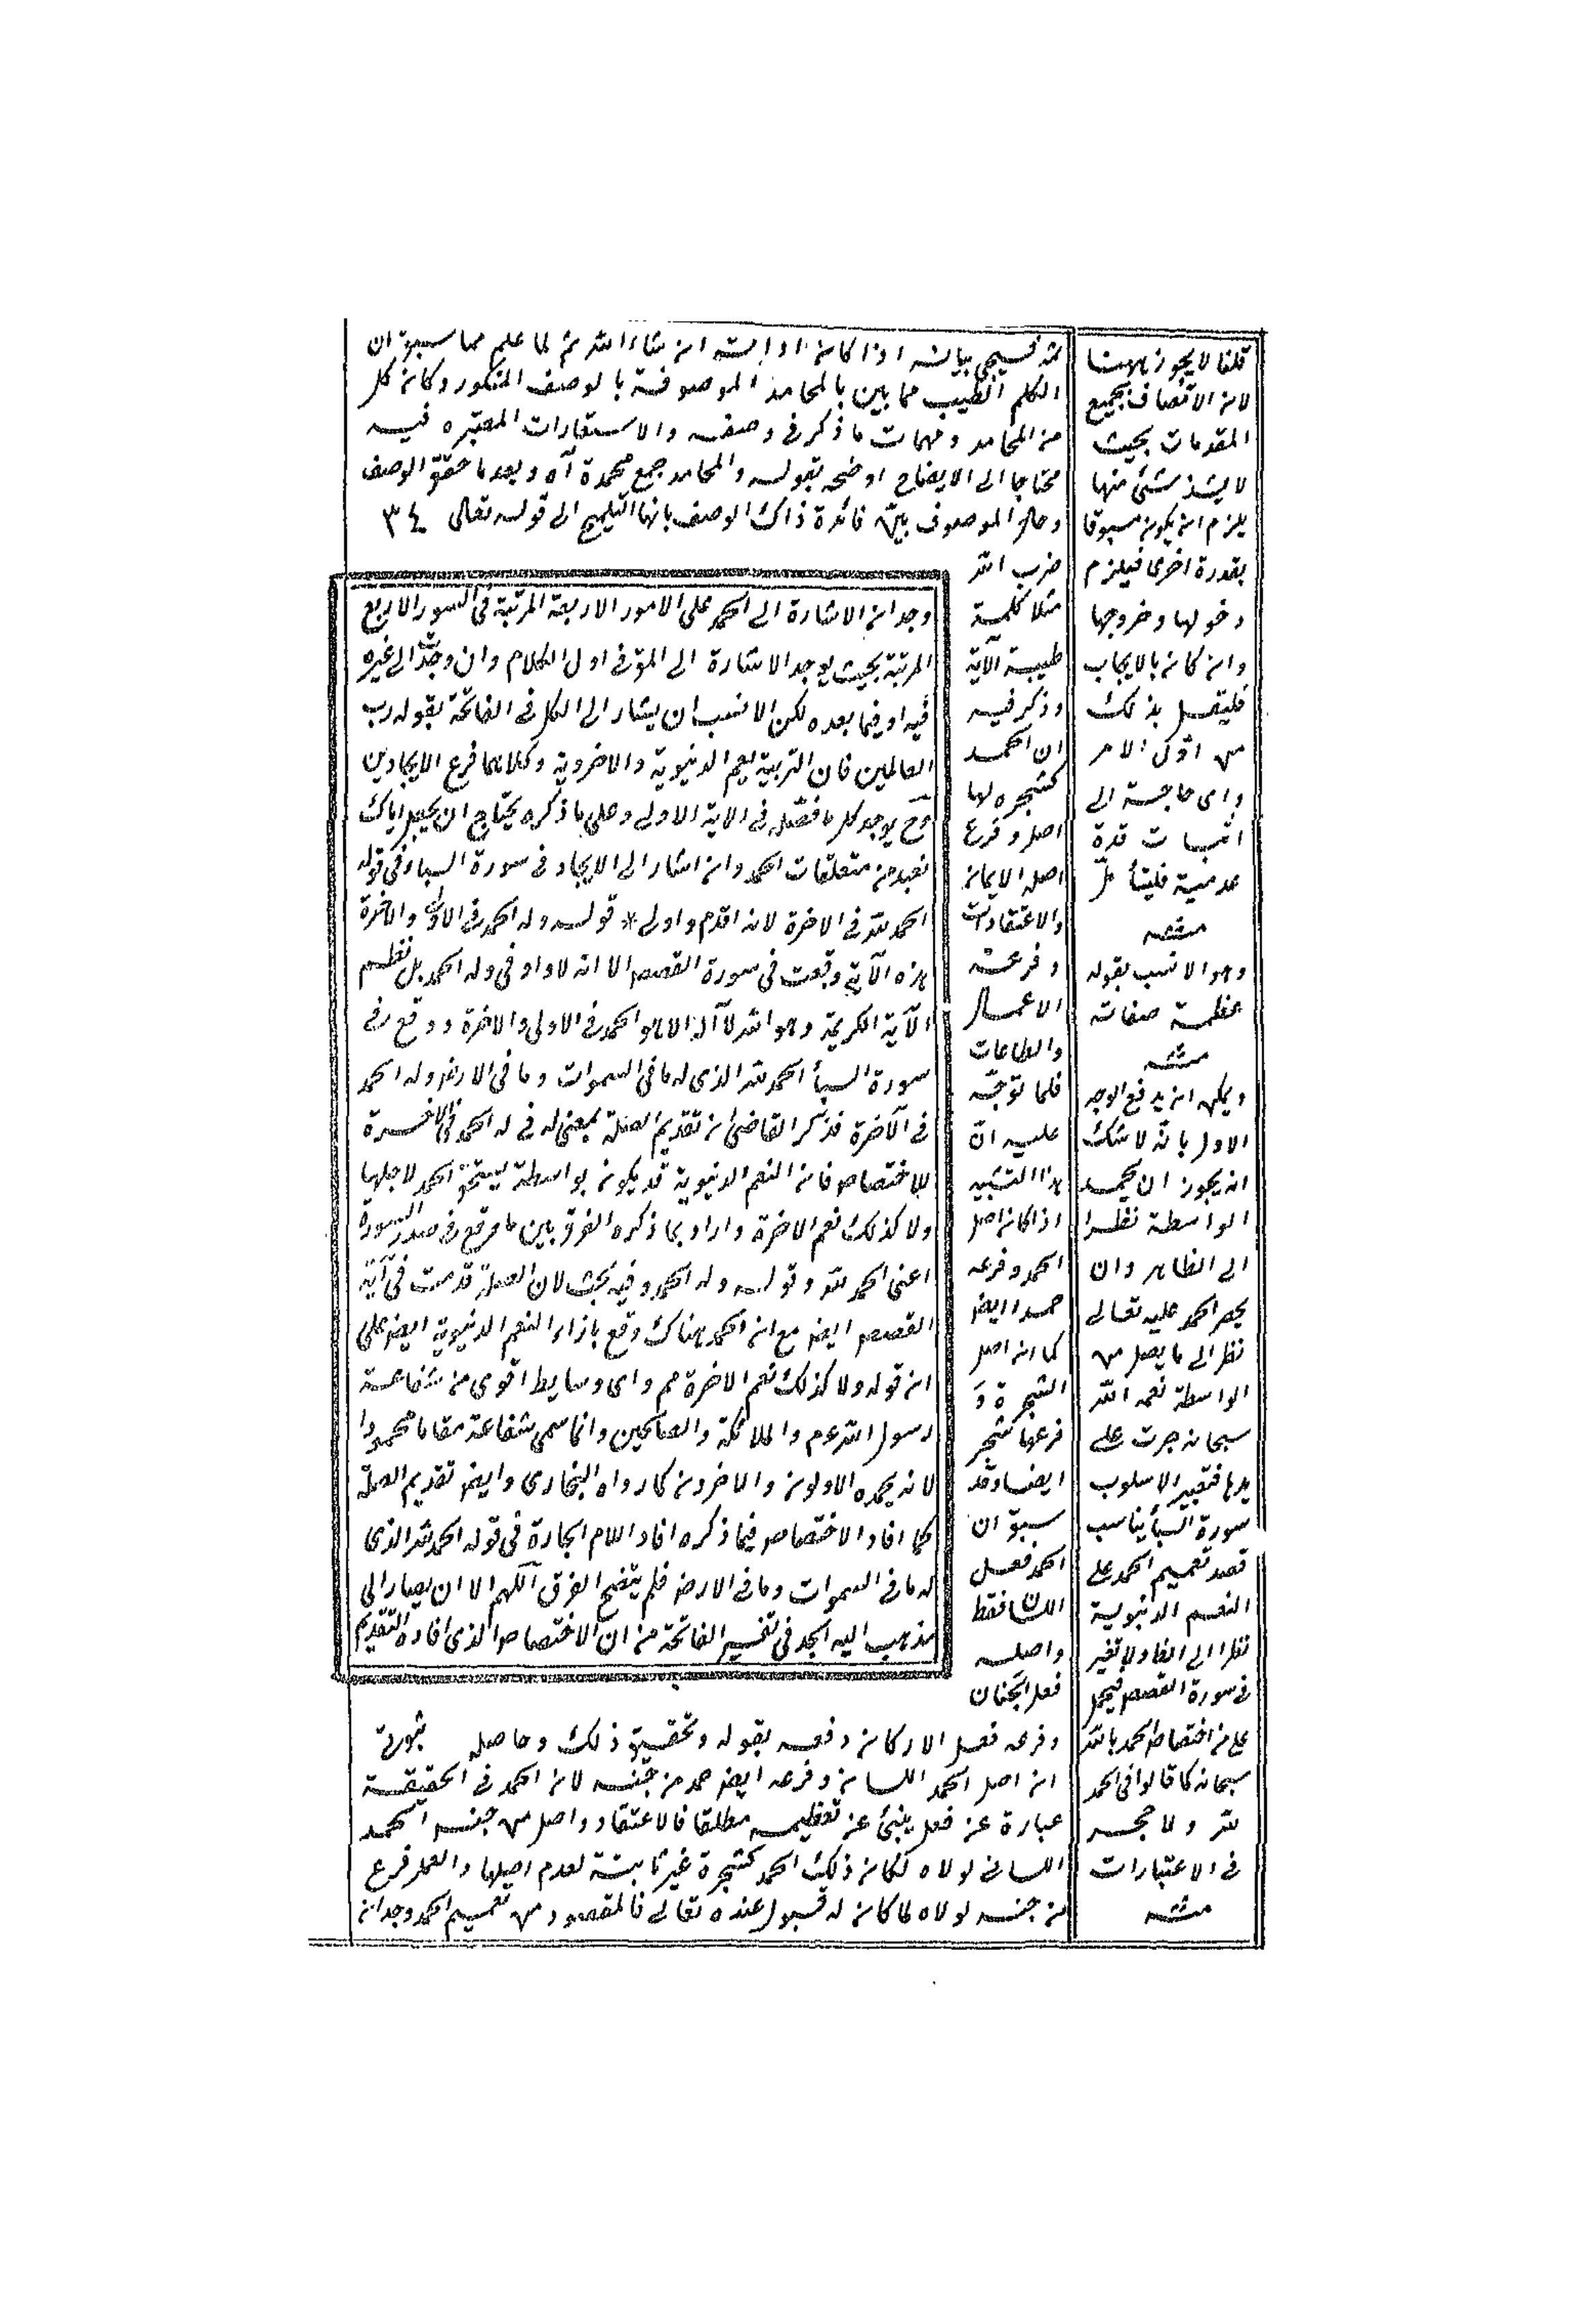 ثمه فسيجئ بيانه اذا كان اوانه ان شاء الله ثم لما علم مما سبق ان
الكلم الطيب مما بين بالمحامد الموصوفة بالوصف المذكور وكان كل
من المحامد وجهات ما ذكر فى وصف والاستعارات المعتبره فيه
محتاجا الى الايضاح اوضحه بقوله والمحامد جمع محمدة آه وبعد ما حقق الوصف
وحال الموصوف بيّن فائدة ذاك الوصف بانها التلميح الى قوله تعالى ٣٤
ضرب الله
مثلا كلمة
طيبة الآية
وذكر فيه
ان الحمد
كشجره لها
اصل وفرع
اصله الايمان
والاعتقادات
وفرعه
الاعمال
والطاعات
فلما توجّه
عليه انّ
هذا التشبيه
اذا كان اصل
الحمد وفرعه
حمدا ايض
كما ان اصل
الشجرة و
فرعها شجر
ايضا وقد
سبق ان
الحمد فعل
اللسان فقط
واصله
فعل الجنان
وفرعه فعل الاركان دفعه بقوله وتحقيق ذلك وحاصله
ان اصل الحمد اللسانى وفرعه ايض حمد من جنسه لان الحمد فى الحقيقة
عبارة عن فعل ينبئ عن تعظيمه مطلقا فالاعتقاد واصل من جنس الحمد
اللسانى لولاه لكان ذلك الحمد كشجرة غير ثابتة لعدم اصلها والعمل فرع
من جنسه لولاه لما كان له قبول عنده تعالى فالمقصود من تعميم الحمد وجدان
وجدان الاشارة الى الحمد على الامور الاربعة المرتبة فى السور الاربع
المرتبة بحيث يوجد الاشارة الى المؤ فى اول الكلام وان وجدت الى غيره
فيه او فيما بعده لكن الانسب ان يشار الى الكل فى الفاتحة بقوله رب
العالمين فان التربية يعم الدنيوية والاخروية وكلاهما فرع الايجادين
وح يوجد كل ما فصّله فى الاية الاولى وعلى ما ذكره يحتاج ان يجعل اياك
نعبد من متعلقات الحمد وان اشار الى الايجاد فى سورة السباء وفى قوله
الحمد لله فى الاخرة لانه اقدم واولى * قوله وله الحمد فى الاولى والاخرة
هذه الآية وقعت فى سورة القصص الا انه لا واو فى وله الحمد بل نظم
الآية الكريمة وهو الله لا آله الا هو له الحمد فى الاولى والاخرة ووقع فى
سورة السبأ الحمد لله الذى له ما فى السموات وما فى الارض وله الحمد
فى الآخرة فذكر القاضى ان تقديم الصلة بمعنى له فى له الحمد فى الاخرة
للاختصاص فان النعم الدنيوية قد يكون بواسطة يستحق الحمد لاجلها
ولا كذلك نعم الاخرة واراد بما ذكره الفرق بين ما وقع فى صدر السورة
اعنى الحمد لله وقوله وله الحمد وفيه بحث لان الصلة قدمت فى آية
القصص ايض مع ان الحمد هناك وقع بازاء النعم الدنيوية ايض على
ان قوله ولا كذلك نعم الاخرة مم واى وسايط اقوى من شفاعة
رسول الله عم والملائكة والصالحين وانما سمى شفاعة مقاما محمودا
لانه يحمده الاولون والاخرون كما رواه البخارى وايض تقديم الصلة
كما افاد الاختصاص فيما ذكره افاد اللام الجارة فى قوله الحمد لله الذى
له ما فى السموات وما فى الارض فلم يتضح الفرق آللهم الا ان يصار الى
مذهب اليه الجد فى تفسير الفاتحة من ان الاختصاص الذى افاده التقديم
قلنا لا يجوز ههنا
لان الاتصاف بجميع
المقدمات بحيث
لا يشذ شئ منها
يلزم ان يكون مسبوقا
بقدرة اخرى فيلزم
دخولها وخروجها
وان كان بالايجاب
فليقل بذلك
من اوّل الامر
واى حاجة الى
اثبات قدرة
عدمية فليتأمّل
منه
وهو الانسب بقوله
عظمة صفاته
منه
ويمكن ان يدفع الوجه
الاول بانّه لا شك
انه يجوز ان يحمد
الواسطة نظرا
الى الظاهر وان
يحصر الحمد عليه تعالى
نظر الى ما يصل من
الواسطة نعمه الله
سبحانه جرت على
يدها فتغيير الاسلوب
سورة السبأ يناسب
قصد تعميم الحمد على
النعم الدنيوية
فى سورة القصص
سبحانه كما قالوا فى الحمد
لله ولا حجر
فى الاعتبارات
منه